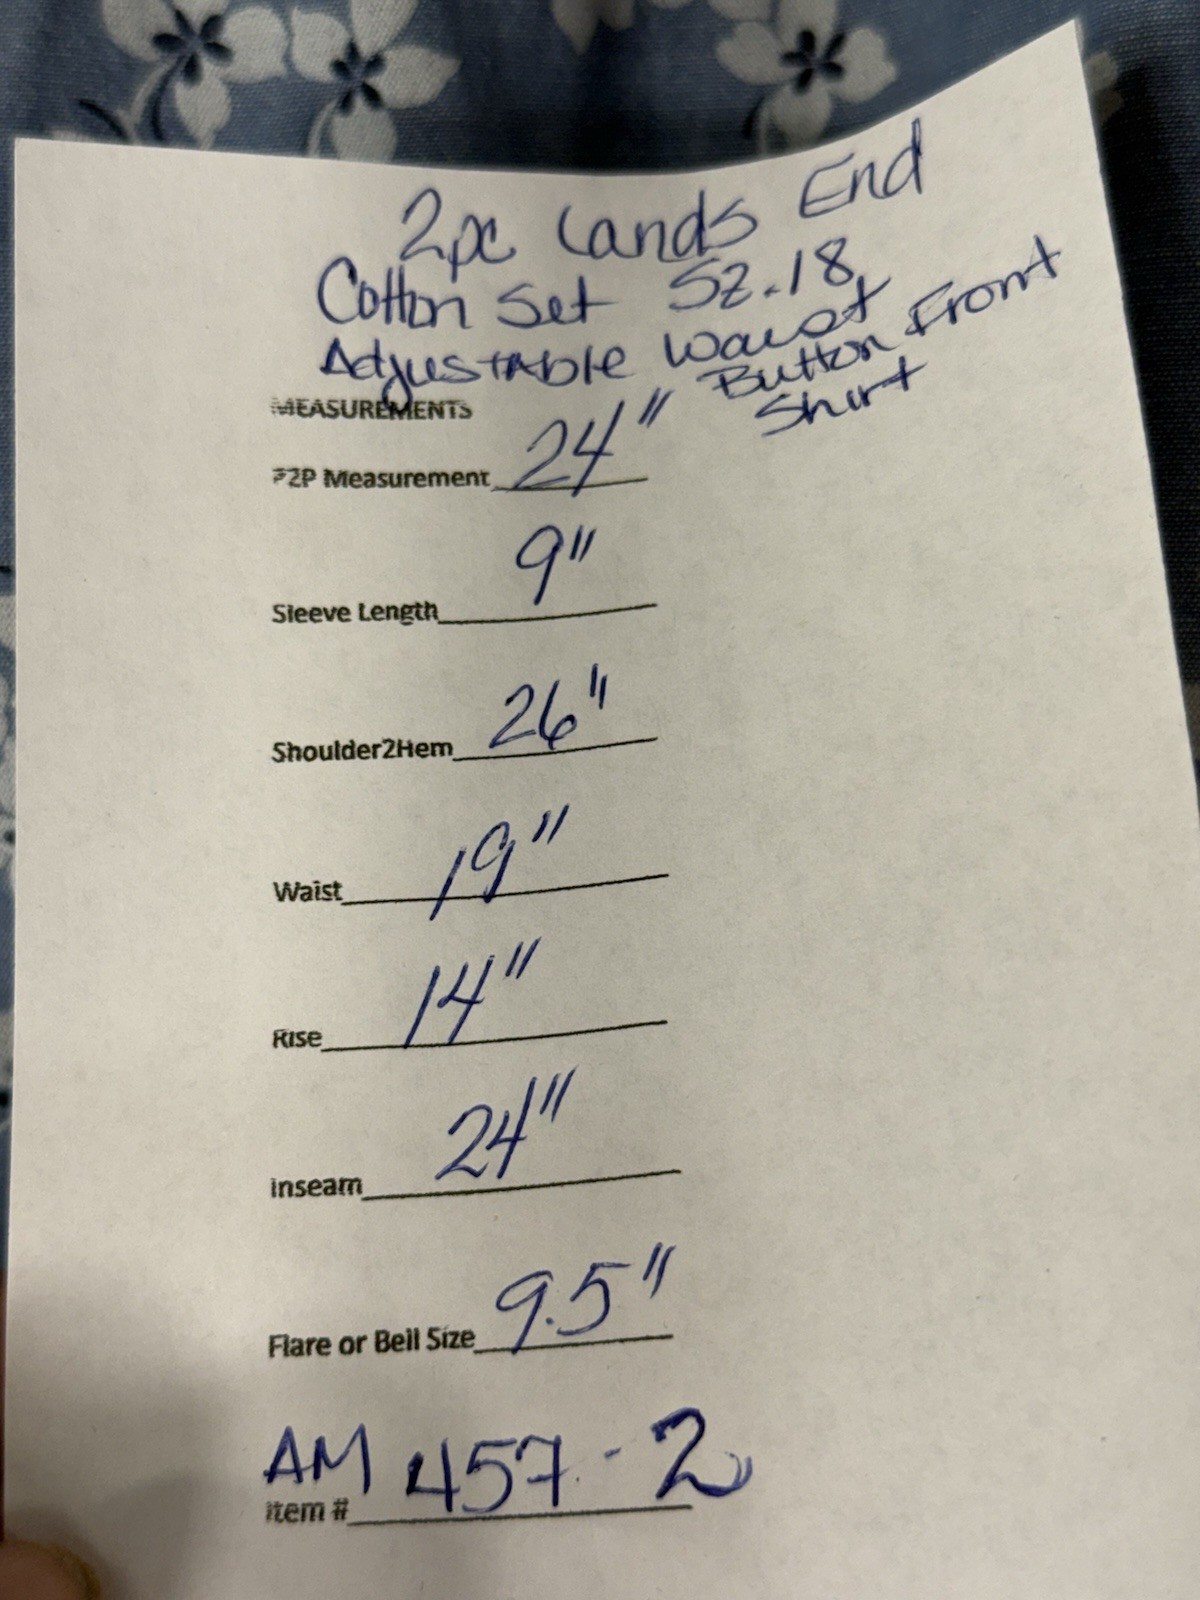 2pc Lands End
Cotton Set Sz. 18
Adjustable Waist
Button Front
Shirt
MEASUREMENTS
P2P Measurement 24"
Sleeve Length 9"
Shoulder2Hem 26"
Waist 19"
Rise 14"
Inseam 24"
Flare or Bell Size 9.5"
AM 457-2
Item #